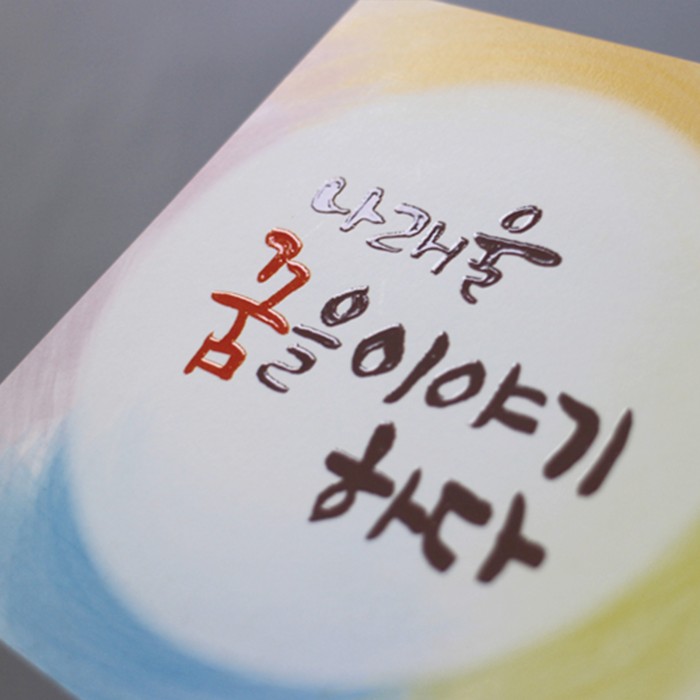 나래울
꿈을이야기
하다